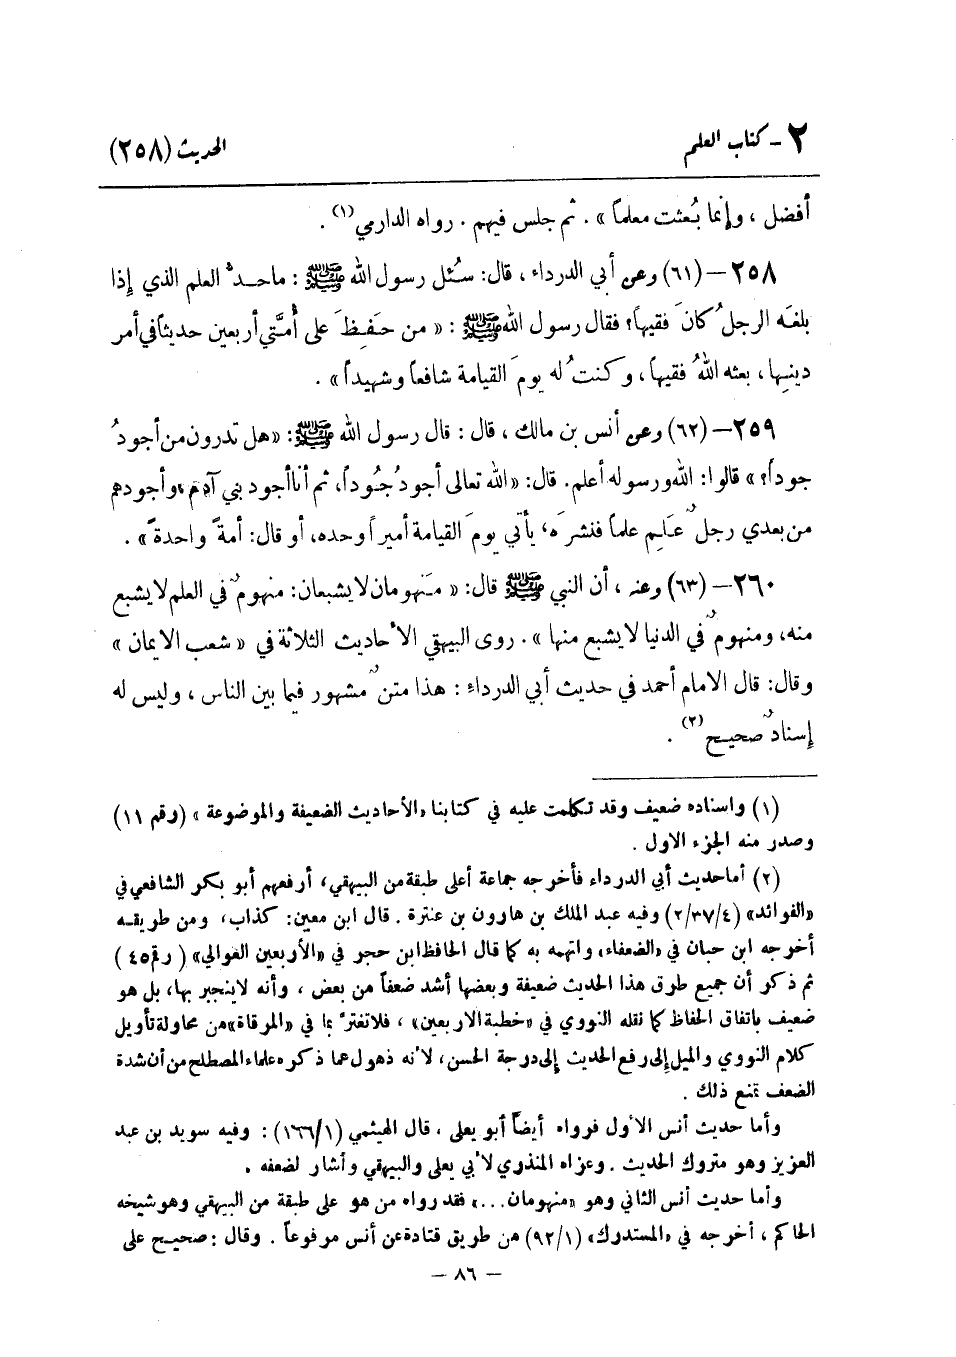 ٢ - كتاب العلم
الحديث (٢٥٨)
أفضل ، وإنما بُعثت معلماً » . ثم جلس فيهم . رواه الدارمي(١) .
٢٥٨ – (٦١) وعن أبي الدرداء ، قال: سُئل رسول الله ﷺ : ماحدُّ العلم الذي إذا
بلغَه الرجلُ كانَ فقيهاً؟ فقال رسول الله ﷺ : « من حَفِظَ على أُمَّتي أربعين حديثاً في أمر
دينِها ، بعثه اللهُ فقيهاً ، وكنتُ له يومَ القيامة شافعاً وشهيداً » .
٢٥٩ – (٦٢) وعن أنس بن مالك ، قال : قال رسول الله ﷺ : «هل تدرون من أجودُ
جوداً؟ » قالوا: الله ورسوله أعلم. قال: «الله تعالى أجودُ جُنُوداً، ثم أنا أجود بني آدم، وأجودهم
من بعدي رجلٌ عَلِمَ علماً فنشرَه، يأتي يومَ القيامة أميراً وحده، أو قال: أمةً واحدةً » .
٢٦٠ – (٦٣) وعنه ، أن النبي ﷺ قال: « مَنهومان لا يشبعان: منهومٌ في العلم لا يشبع
منه، ومنهومٌ في الدنيا لا يشبع منها » . روى البيهقي الأحاديث الثلاثة في « شعب الايمان »
وقال: قال الامام أحمد في حديث أبي الدرداء : هذا متنٌ مشهور فيما بين الناس ، وليس له
إسنادٌ صحيح(٢) .
(١) واسناده ضعيف وقد تكلمت عليه في كتابنا «الأحاديث الضعيفة والموضوعة » (رقم ١١)
وصدر منه الجزء الاول .
(٢) أما حديث أبي الدرداء فأخرجه جماعة أعلى طبقة من البيهقي، أرفعهم أبو بكر الشافعي في
«الفوائد» (٢/٣٧/٤) وفيه عبد الملك بن هارون بن عنترة . قال ابن معين: كذاب، ومن طريقه
أخرجه ابن حبان في «الضعفاء» واتهمه به كما قال الحافظ ابن حجر في «الأربعين العوالي» (رقم ٤٥)
ثم ذكر أن جميع طرق هذا الحديث ضعيفة وبعضها أشد ضعفاً من بعض ، وأنه لا ينجبر بها، بل هو
ضعيف باتفاق الحفاظ كما نقله النووي في «خطبة الاربعين» ، فلا تغترَّ بما في «المرقاة» من محاولة تأويل
كلام النووي والميل إلى رفع الحديث إلى درجة الحسن، لأنه ذهول عما ذكره علماء المصطلح من أن شدة
الضعف تمنع ذلك .
وأما حديث أنس الأول فرواه أيضاً أبو يعلى ، قال الهيثمي (١٦٦/١) : وفيه سويد بن عبد
العزيز وهو متروك الحديث . وعزاه المنذري لأبي يعلى والبيهقي وأشار لضعفه .
وأما حديث أنس الثاني وهو «منهومان ...» فقد رواه من هو على طبقة من البيهقي وهو شيخه
الحاكم ، أخرجه في «المستدرك» (٩٢/١) من طريق قتادة عن أنس مرفوعاً . وقال : صحيح على
– ٨٦ –